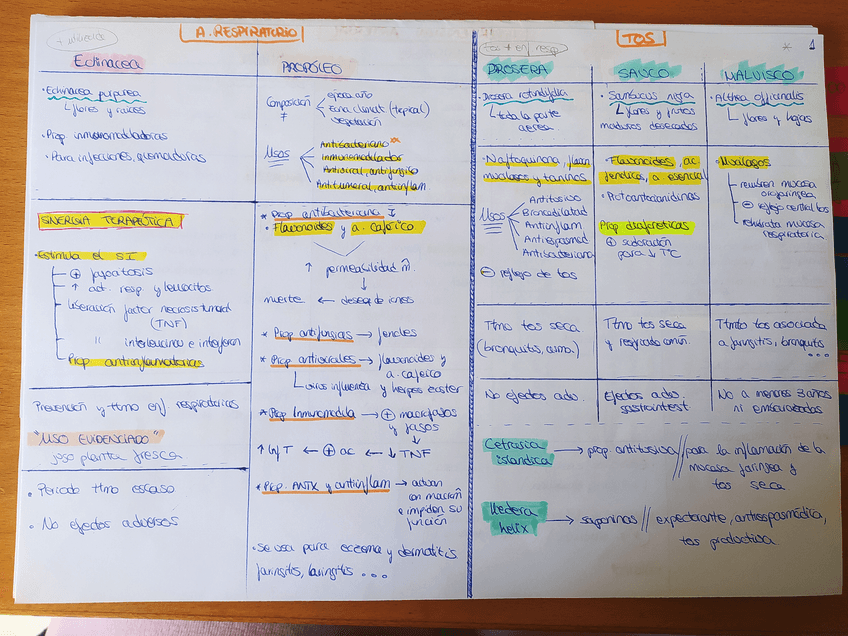 A. RESPIRATORIO
+ utilizada
Echinacea
· Echinacea purpurea
↳ flores y raices
· Prop inmunomoduladoras
· Para infecciones, quemaduras
SINERGIA TERAPEÚTICA
· Estimula el SI
⊕ fagocitosis
↑ act. resp. y leucocitos
liberación factor necrosis tumoral
(TNF)
" interleucinas e interferon
Prop antiinflamatorias
Prevención y ttmo enf. respiratorias
"USO EVIDENCIADO"
jugo planta fresca
· Periodo ttmo escaso
· No efectos adversos
PROPÓLEO
Composición ≠
epoca año
zona climat. (topical)
vegetación
Usos
Antibacteriano
inmunomodulador
Antiviral, antifungico
Antitumoral, antiinflam
* Prop antibacteriana
· Flavonoides y a. cafeico
↑ permeabilidad
↓
muerte ← deseq de iones
* Prop antifungicas → fenoles
* Prop antivirales → flavonoides y
a. cafeico
↳ virus influenza y herpes zoster
* Prop Inmunomodula → ⊕ macrofagos
y fagos
↓
↑ ← ⊕ ac ← ↓ TNF
* Prop. ANTX y antiinflam → actuan
con macrof
e impiden su
función
· Se usa para eczema y dermatitis
faringitis, laringitis ...
TOS
tos + en resp.
* 1
DROSERA
· Drosera rotundifolia
↳ toda la parte
aerea
· Naftoquinona, flavon
mucilagos y taninos
Usos
Antitusivo
Broncodilatad
Antiinflam
Antiespasmod
Antibacteriano
⊖ reflejo de tos
Ttmo tos seca
(bronquitis, asma..)
No efectos adv.
SAUCO
· Sambucus nigra
↳ flores y frutos
maduros desecados
· Flavonoides, ac
fenolicos, a esencial
· Protoantocianidinas
Prop diaforeticas
⊕ sudoración
para ↓ TªC
Ttmo tos seca
y resfriado comun.
Efectos adv.
gastrointest.
MALVISCO
· Althea officinalis
↳ flores y hojas
· Mucilagos
recubren mucosa
orofaringea
⊖ reflejo central tos
rehidrata mucosa
respiratoria
Ttmto tos asociada
a faringitis, bronquitis
...
No a menores 3 años
ni embarazadas
Cetraria islandica → prop. antitusiva // para la inflamacion de la
mucosa faringea y
tos seca
Hedera helix → saponinas // expectorante, antiespasmódica,
tos productiva